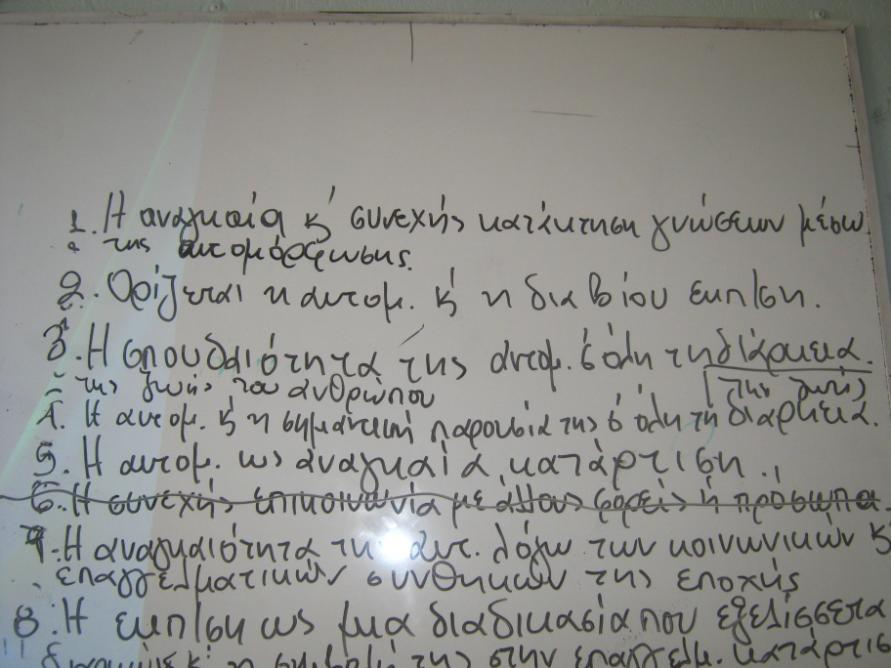 1. Η αναγκαία κ' συνεχής κατάκτηση γνώσεων μέσω
της αυτομόρφωσης.
2. Ορίζεται η αυτομ. κ' η δια βίου εκπ/ση.
3. Η σπουδαιότητα της αυτομ. σ' όλη τη διάρκεια.
της ζωής του ανθρώπου
της ζωής
4. Η αυτομ. κ' η σημαντική παρουσία της σ' όλη τη διάρκεια.
5. Η αυτομ. ως αναγκαία κατάρτιση.
6. Η συνεχής επικοινωνία με άλλους φορείς ή πρόσωπα.
7. Η αναγκαιότητα της αυτ. λόγω των κοινωνικών κ'
επαγγελματικών συνθηκών της εποχής
8. Η εκπ/ση ως μια διαδικασία που εξελίσσεται
κ' η συμβολή της στην επαγγελμ. κατάρτισ